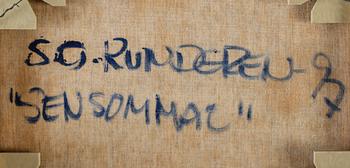 SO. RUNDEREN-93
"SENSOMMAR"